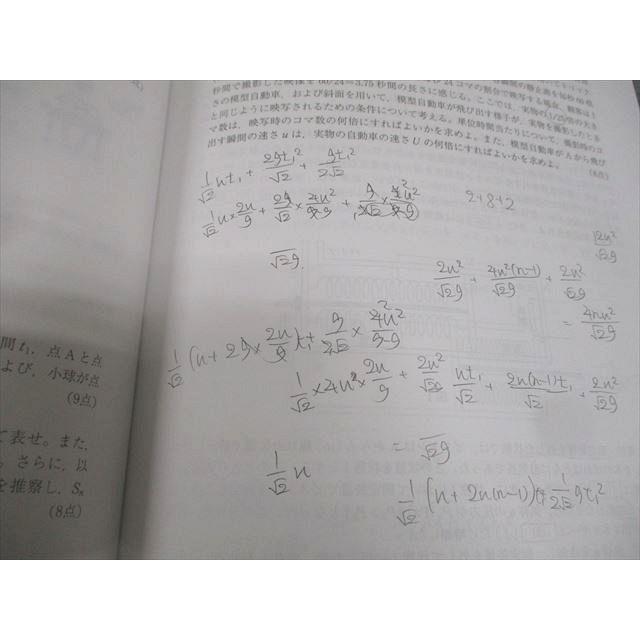 秒間で撮影した映像を60/24=3.75秒間の長さに感じる。ここでは、実物の1/25倍の大き
さの模型自動車、および斜面を用いて、模型自動車が飛び出す様子が、実物を撮影したとき
と同じように映写されるための条件について考える。単位時間当たりについて、撮影時のコ
マ数は、映写時のコマ数の何倍にすればよいかを求めよ。また、模型自動車がAから飛び
出す瞬間の速さuは、実物の自動車の速さUの何倍にすればよいかを求めよ。
(8点)
1/√2 ut₁ + 2gt₁²/√2 + gt₁²/2√2
1/√2 u × 2u/g + 2g/√2 × 4u²/g·g + g/2√2 × 4u²/g·g
2+8+2
12u²/√2g
√2g
2u²/√2g + 4u²(n-1)/√2g + 2u²/√2g
= 4nu²/√2g
1/√2 (u + 2g × 2u/g) t₁ + g/2√2 × 4u²/g·g
1/√2 × 4u² × 2u/g + 2u²/√2g
ut₁/√2 + 2u(n-1)t₁/√2 + 2u²/√2g
= √2g
1/√2 u
1/√2 (u + 2u(n-1))t₁ + 1/2√2 gt₁²
間 t₁、点Aと点
よび、小球が点
(9点)
て表せ。また、
。さらに、以
を推察し、Sₙ
(8点)